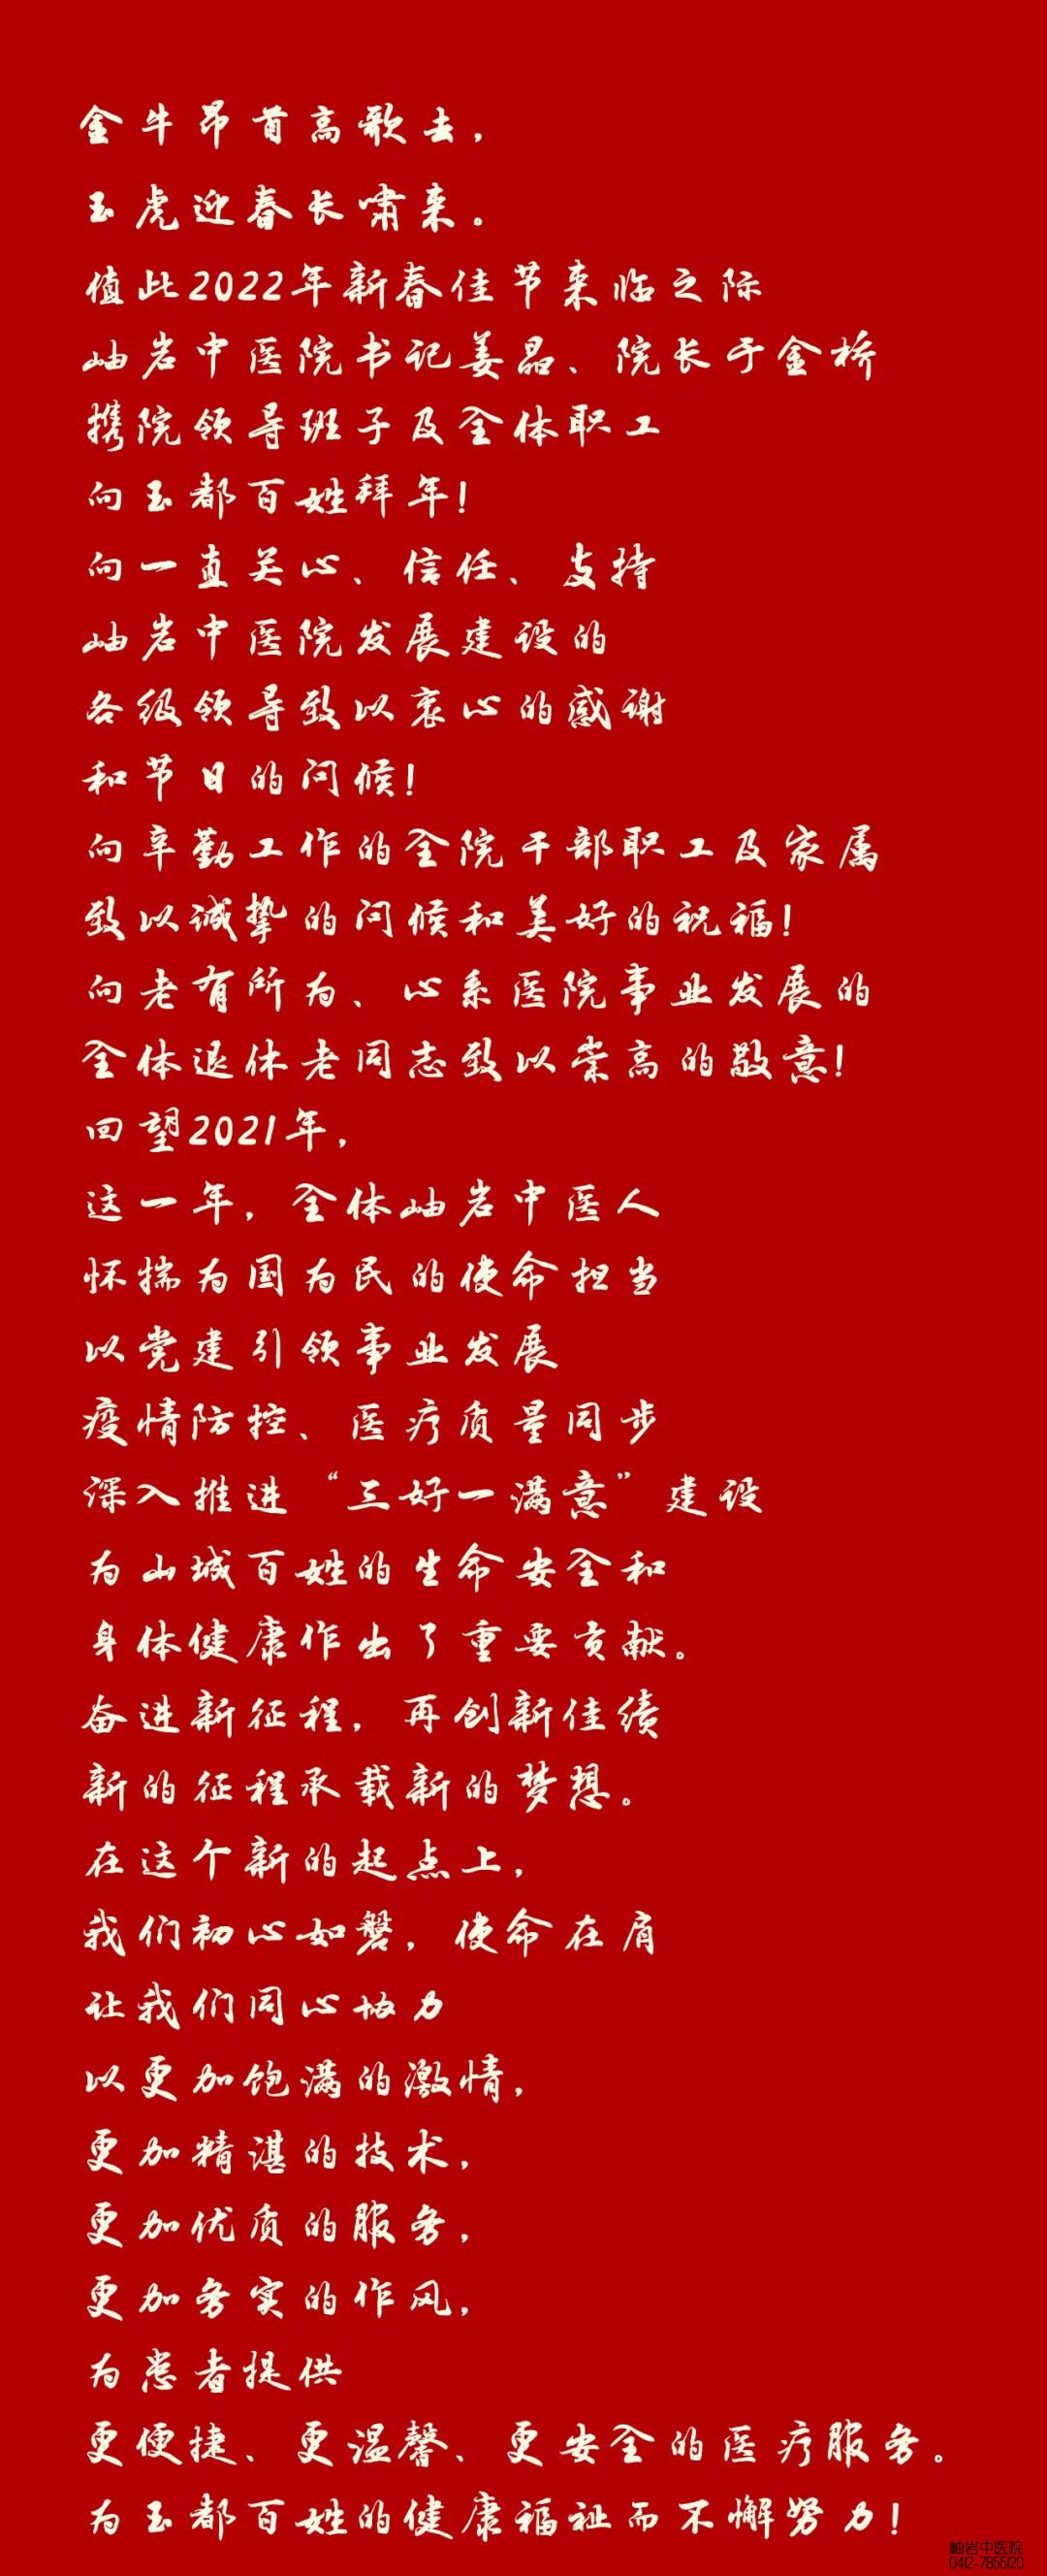 金牛昂首高歌去，
玉虎迎春长啸来。
值此2022年新春佳节来临之际
岫岩中医院书记姜晶、院长于金桥
携院领导班子及全体职工
向玉都百姓拜年！
向一直关心、信任、支持
岫岩中医院发展建设的
各级领导致以衷心的感谢
和节日的问候！
向辛勤工作的全院干部职工及家属
致以诚挚的问候和美好的祝福！
向老有所为、心系医院事业发展的
全体退休老同志致以崇高的敬意！
回望2021年，
这一年，全体岫岩中医人
怀揣为国为民的使命担当
以党建引领事业发展
疫情防控、医疗质量同步
深入推进“三好一满意”建设
为山城百姓的生命安全和
身体健康作出了重要贡献。
奋进新征程，再创新佳绩
新的征程承载新的梦想。
在这个新的起点上，
我们初心如磐，使命在肩
让我们同心协力
以更加饱满的激情，
更加精湛的技术，
更加优质的服务，
更加务实的作风，
为患者提供
更便捷、更温馨、更安全的医疗服务。
为玉都百姓的健康福祉而不懈努力！
岫岩中医院
0412-7855120